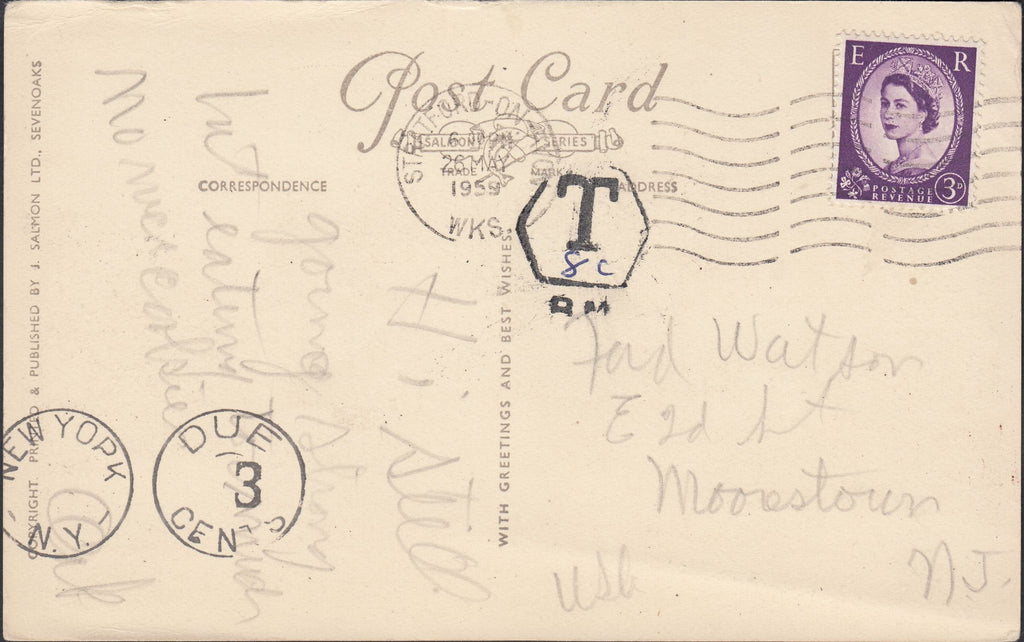 Post Card
SALMON SERIES
TRADE MARK
CORRESPONDENCE
ADDRESS
STRATFORD-ON-AVON
26 MAY
1959
WKS.
T
8 c
E R
POSTAGE
REVENUE
3D
Hi. Still
going strong
but eating
WITH GREETINGS AND BEST WISHES.
COPYRIGHT. PRINTED & PUBLISHED BY J. SALMON LTD., SEVENOAKS
NEW YORK
N.Y. 1
DUE
3
CENTS
Watson
E 2d St
Moorestown
N.J.
USA